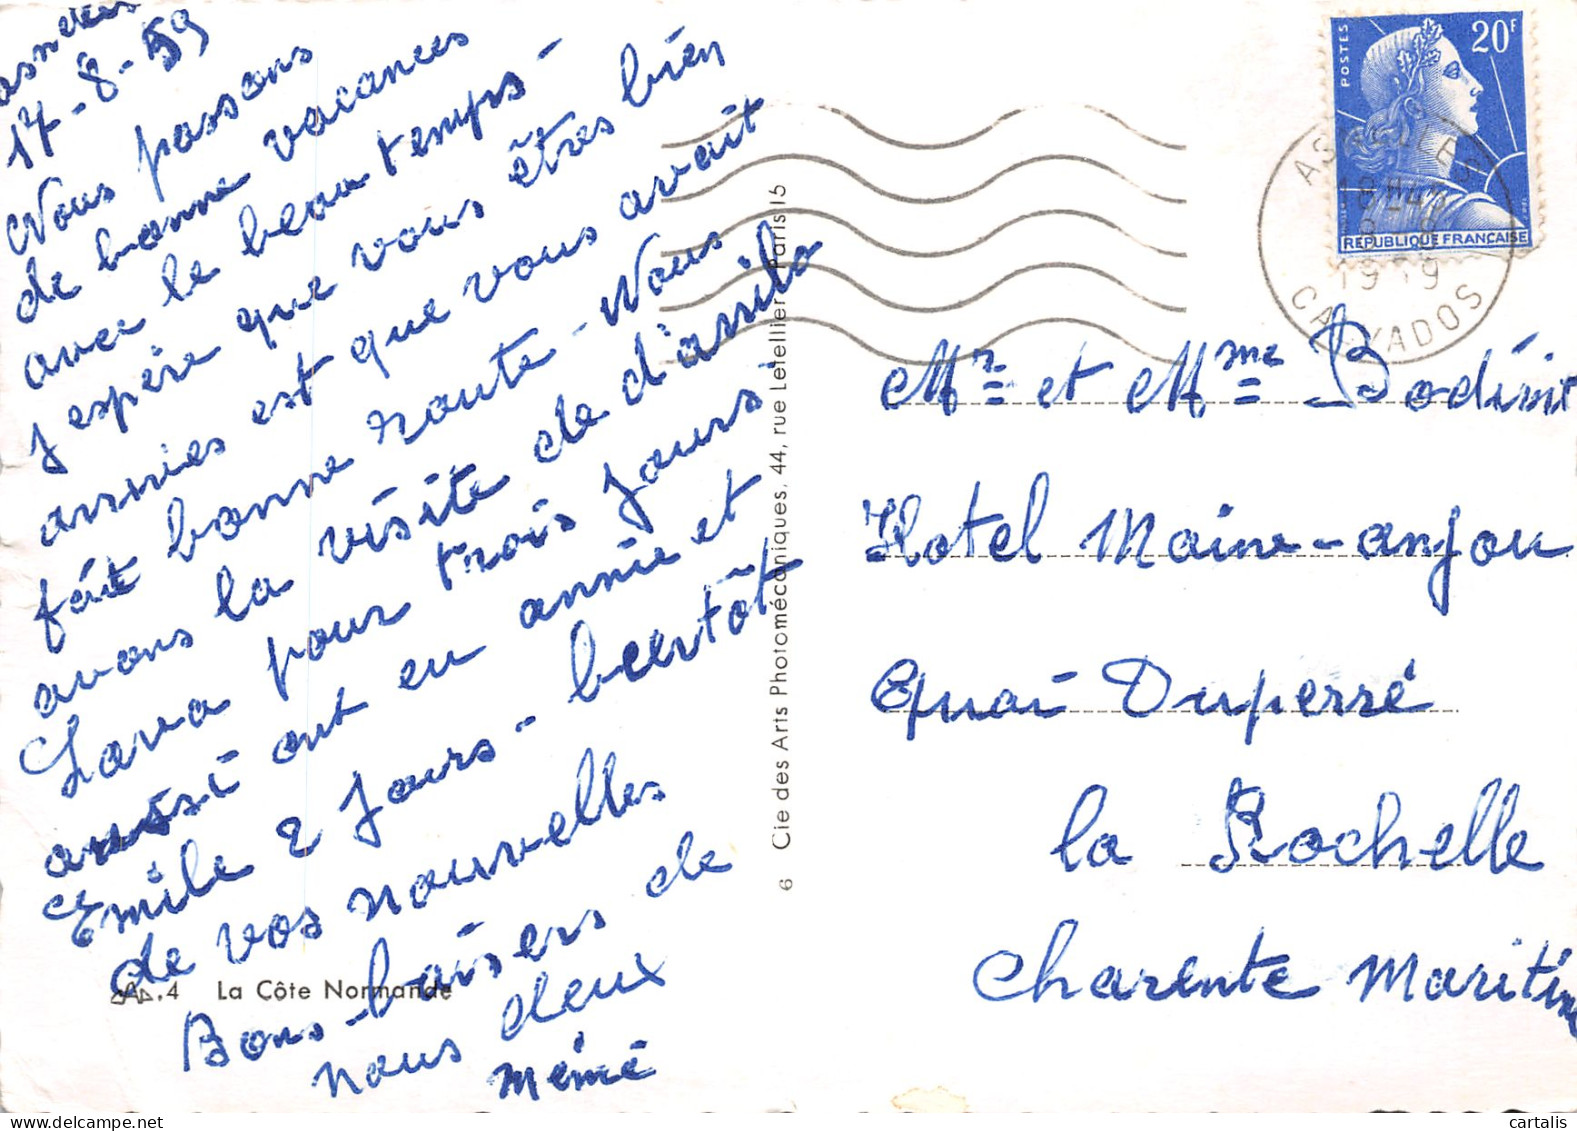 17-8-59
Nous passons
de bonne vacances
avec le beau temps -
J'espère que vous êtres bien
arrivés est que vous avait
fait bonne route - Nous
avons la visite de
pour trois Jours -
aussi ont eu année et
Emile 2 Jours - bientôt
de vos nouvelles
Bons baisers de
nous deux
mémé
4 La Côte Normande
6 Cie des Arts Photomécaniques, 44, rue Letellier Paris 15
POSTES
20F
REPUBLIQUE FRANÇAISE
ASNELLES
CALVADOS
Mr et Mme
Hotel Maine-anjou
Quai Duperré
la Rochelle
Charente Maritime